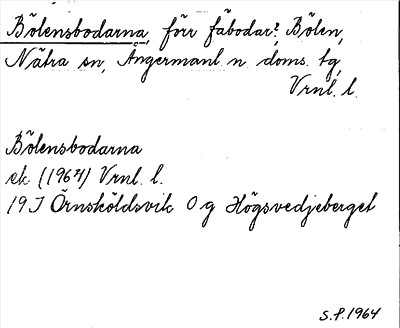 Bölensbodarna, förr fäbodar?, Bölen,
Nätra sn, Ångermanl. n. doms. tg,
Vrnl. l.
Bölensbodarna
ek (1961) Vrnl. l.
19 J Örnsköldsvik 0 g Högsvedjeberget
S.P. 1964